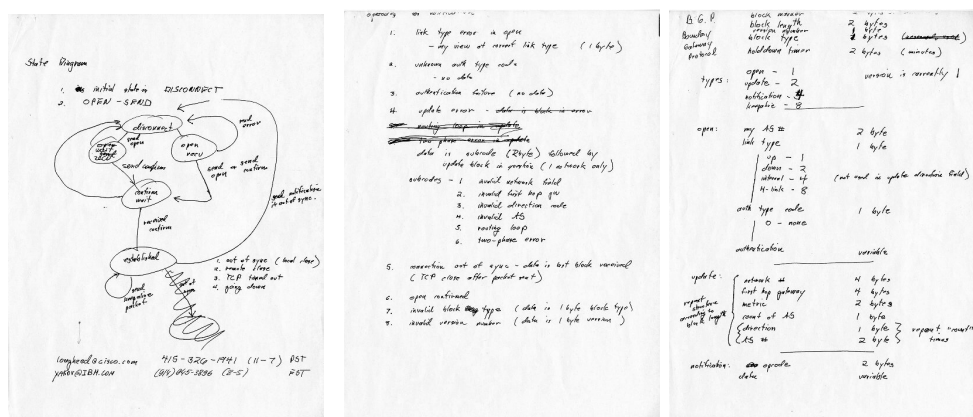 State Diagram
1. initial state is DISCONNECT
2. OPEN - SEND
disconnect
send open
send error
open wait
open recv
send confirm
send open
send confirm
send notification
if out of sync.
confirm wait
received confirm
established
1. out of sync (local close)
2. remote close
3. TCP timed out
4. going down
send keepalive packet
out of sync
lougheed@cisco.com 415-326-1941 (11-7) PST
yakov@IBM.COM EST
1. link type error in open
- my view of correct link type (1 byte)
2. unknown auth type code
- no data
3. authentication failure (no data)
4. update error - data is block in error
routing loop in update
two phase error in update
data is subcode (2 byte) followed by
update block in question (1 network only)
subcodes - 1 invalid network field
2. invalid first hop gw
3. invalid direction code
4. invalid AS
5. routing loop
6. two-phase error
5. connection out of sync - data is last block received
(TCP close after packet sent)
6. open confirmed
7. invalid block type (data is 1 byte block type)
8. invalid version number (data is 1 byte version)
B.G.P.
Boundary
Gateway
Protocol
block marker 2 bytes
block length 2 bytes
version number 1 byte
block type bytes
holddown timer 2 bytes (minutes)
types:
open - 1 version is currently 1
update - 2
notification - 4
keepalive - 8
open:
my AS # 2 byte
link type 1 byte
up - 1
down - 2
internal - 4 (not used in update direction field)
H-link - 8
auth type code 1 byte
0 - none
authentication variable
update:
repeat structure according to block length
network # 4 bytes
first hop gateway 4 bytes
metric 2 bytes
count of AS 1 byte
direction 1 byte
AS # 2 byte
repeat "count" times
notification: opcode 2 bytes
data variable